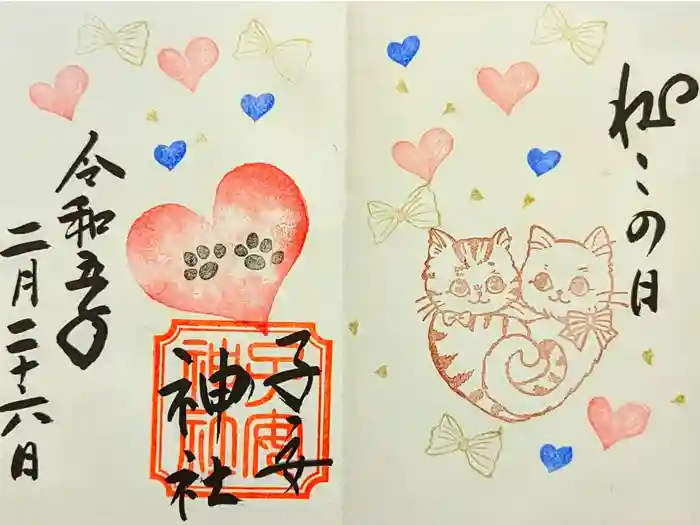 ねこの日
子安
神社
令和五年
二月二十六日